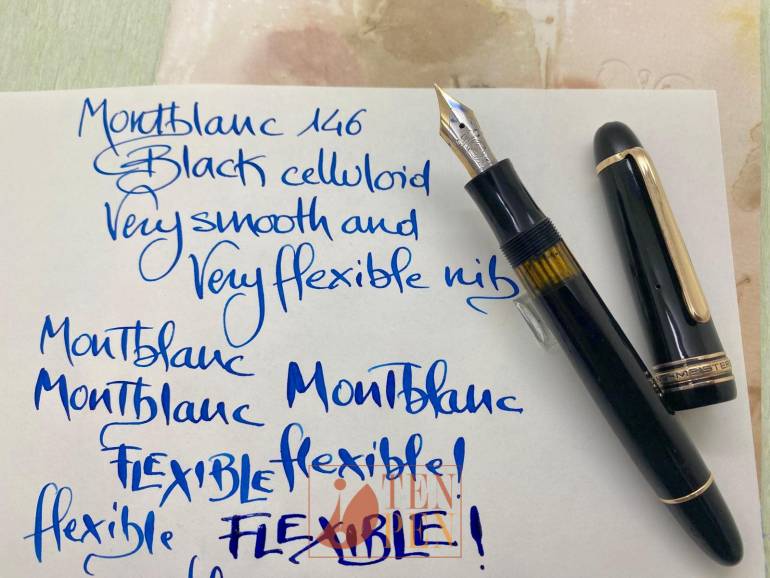 Montblanc 146
Black celluloid
Very smooth and
Very flexible nib
Montblanc
Montblanc Montblanc
FLEXIBLE flexible!
flexible FLEXIBLE!
TEN
PEN
MEISTER